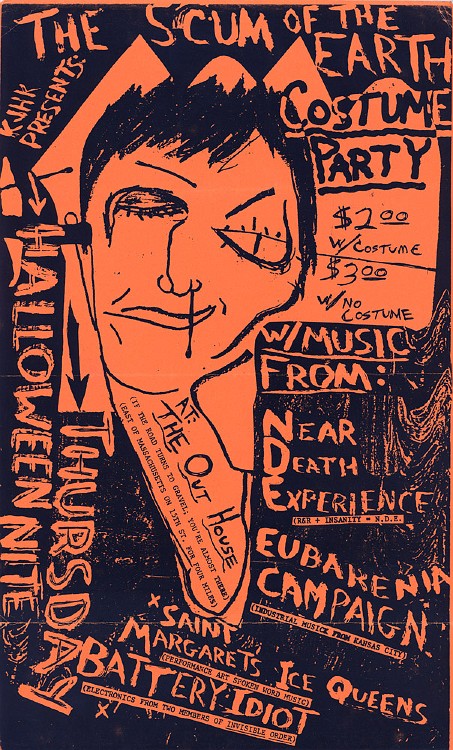 THE SCUM OF THE
EARTH
COSTUME
PARTY
KJHK
PRESENTS:
$2.00
W/COSTUME
$3.00
W/NO
COSTUME
HALLOWEEN NITE
THURSDAY
W/MUSIC
FROM:
NEAR
DEATH
EXPERIENCE
(R&R + INSANITY = N.D.E.
EUBAKENIA
CAMPAIGN
(INDUSTRIAL MUSICK FROM KANSAS CITY)
AT:
THE OUT HOUSE
(EAST OF MASSACHUSETTS ON 15TH ST. FOR FOUR MILES)
(IF THE ROAD TURNS TO GRAVEL, YOU'RE ALMOST THERE)
x SAINT
MARGARETS ICE QUEENS
(PERFORMANCE ART SPOKEN WORD MUSIC)
BATTERY IDIOT
(ELECTRONICS FROM TWO MEMBERS OF INVISIBLE ORDER)
x